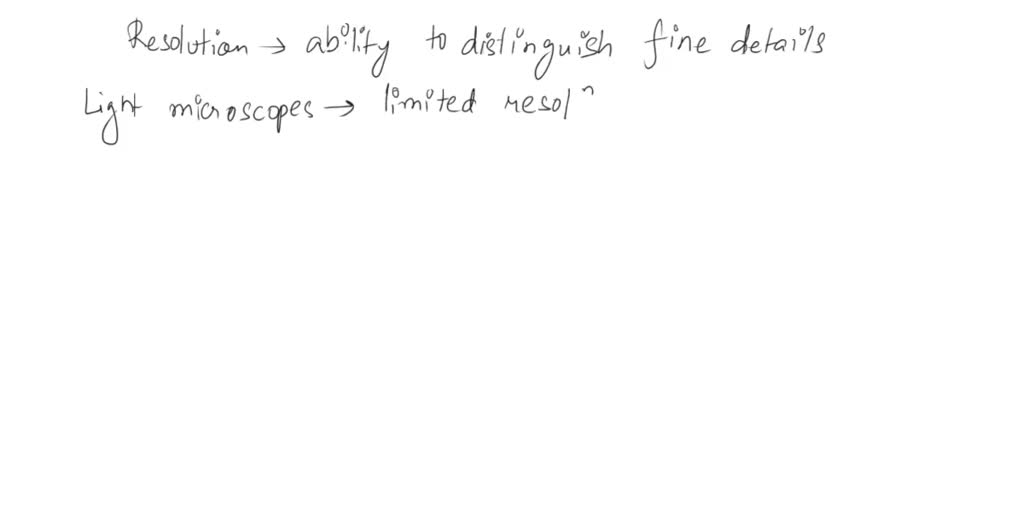 Resolution → ability to distinguish fine details
Light microscopes → limited resolⁿ